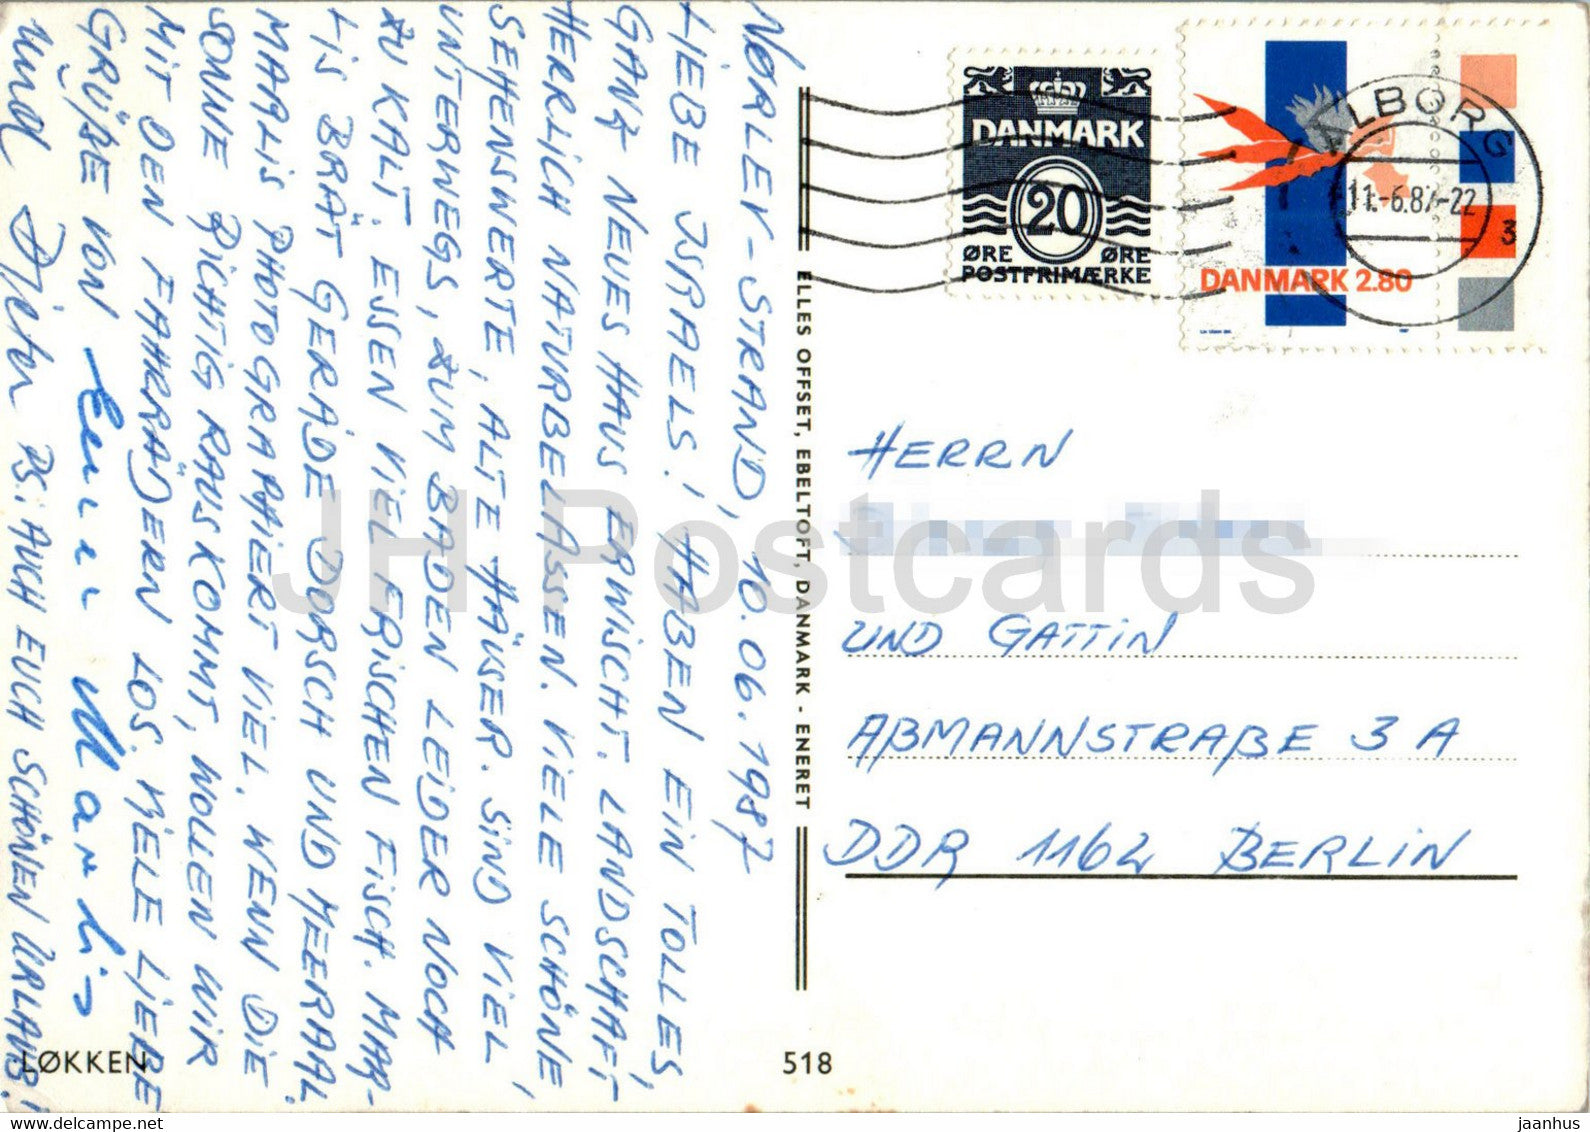 NØRLEV-STRAND, 10.06.1987
LIEBE ISRAELS! HABEN EIN TOLLES,
GANZ NEUES HAUS ERWISCHT. LANDSCHAFT
HERLICH NATURBELASSEN. VIELE SCHÖNE,
SEHENSWERTE, ALTE HÄUSER. SIND VIEL
UNTERWEGS, ZUM BADEN LEIDER NOCH
ZU KALT. ESSEN VIEL FRISCHEN FISCH. MAR-
LIS BRÄT GERADE DORSCH UND MEERAAL.
MARLIS PHOTOGRAPHIERT VIEL. WENN DIE
SONNE RICHTIG RAUSKOMMT, WOLLEN WIR
MIT DEN FAHRRÄDERN LOS. VIELE LIEBE
GRÜßE VON Eurer Marlis
und Dieter PS: AUCH EUCH SCHÖNEN URLAUB!
LØKKEN
518
ELLES OFFSET, EBELTOFT, DANMARK - ENERET
DANMARK
20
ØRE ØRE
POSTFRIMÆRKE
DANMARK 2.80
AALBORG
11.-6.87-22
3
HERRN
UND GATTIN
AßMANNSTRAßE 3 A
DDR 1162 BERLIN
JH Postcards
www.delcampe.net
jaanhus